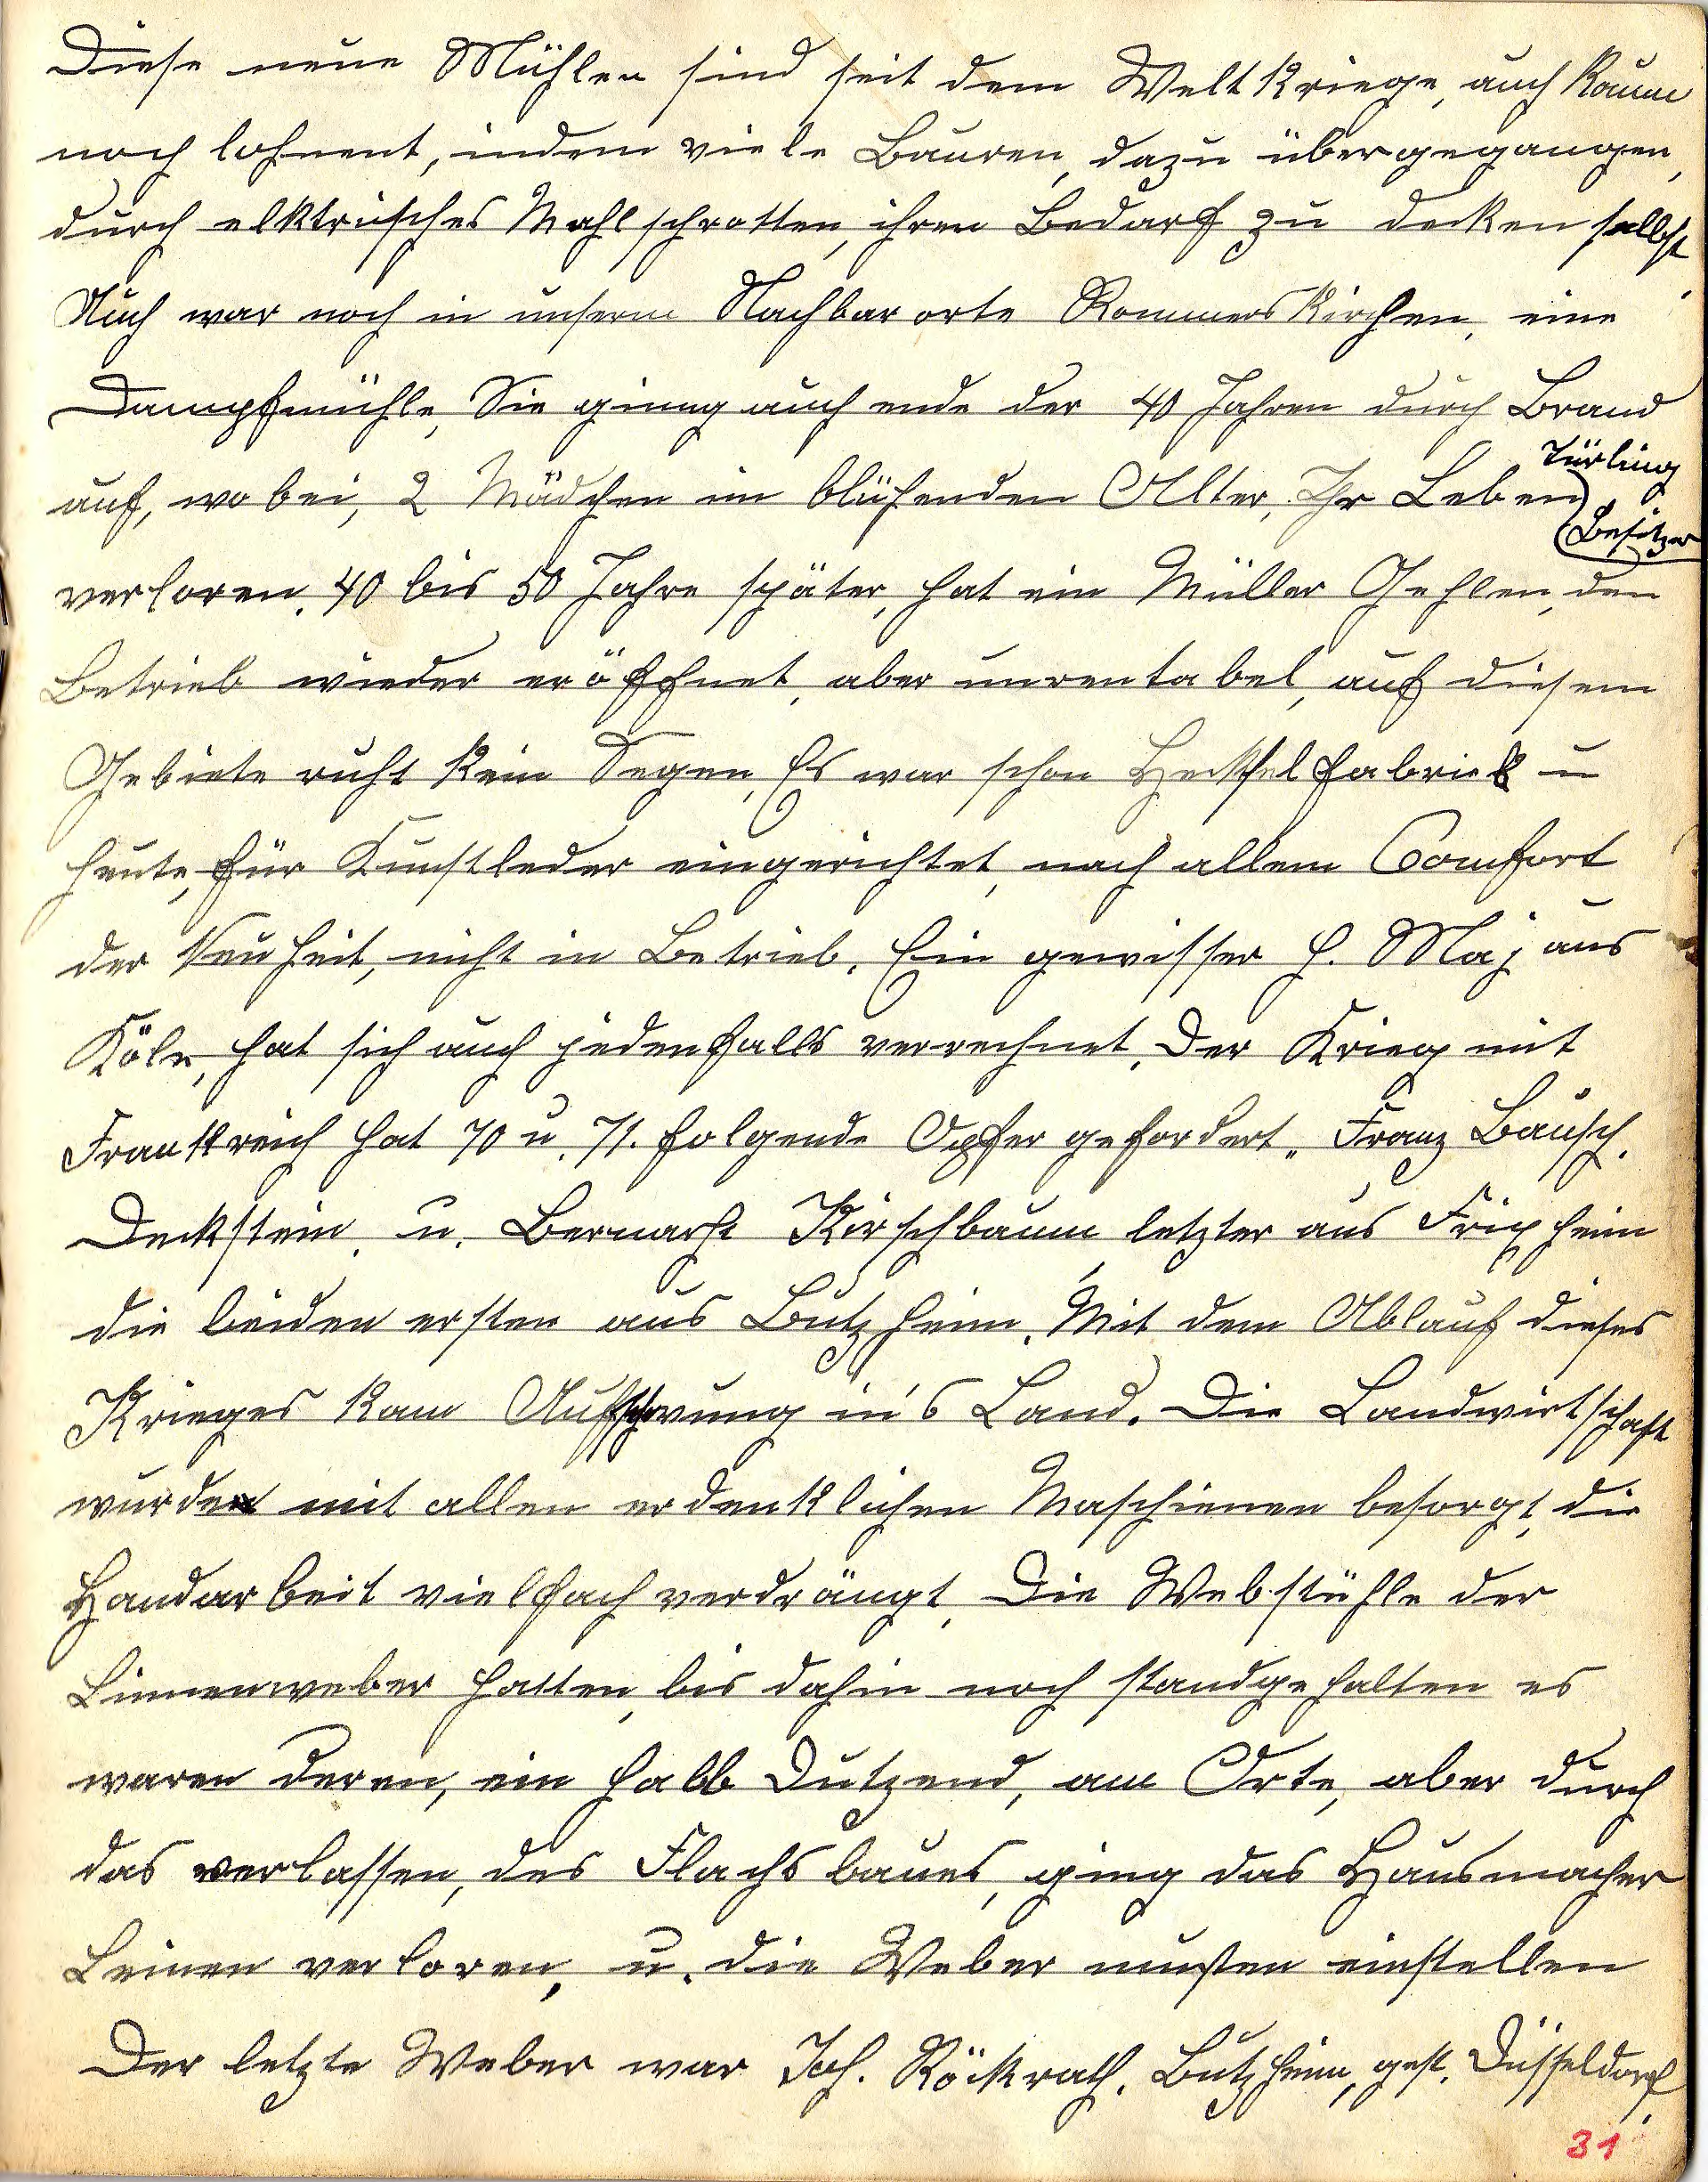 Diese neue Mühlen sind seit dem Weltkriege, auch kaum
noch lohnent, indem viele Bauren, dazu übergegangen,
durch elktrisches Mahlschrotten, ihren Bedarf zu decken selbst.
Auch war noch in unserm Nachbarorte Rommerskirchen, eine
Dampfmühle, Sie ginng auch ende der 40 Jahren durch Brand
Türling
auf, wobei, 2 Mädchen im blühenden Allter, Ihr Leben
Besitzer
verloren. 40 bis 50 Jahre später, hat ein Müller Gehlen, den
Betrieb wieder eröffnet, aber unrentabel, auf diesem
Gebiete ruht kein Segen, Es war schon Heckselfabriek u
heute, für Kunstleder eingerichtet, nach allem Comfort
der Neuheit, nicht in Betrieb. Ein gewisser H. Maj aus
Köln, hat sich auch jedenfalls verrechnet. Der Krieg mit
Frankreich hat 70 u. 71. folgende Opfer gefordert„ Franz Bausch.
Deckstein. u. Bernarht Kirschbaum letzter aus Frixheim
die beiden ersten aus Butzheim. Mit dem Ablauf dieses
Krieges kam Aufschwung in's Land. Die Landwirtschaft
wurde mit allen erdenklichen Maschienen besorgt, die
Handarbeit vielfach verdrängt. Die Webstühle der
Linnenweber hatten, bis dahin noch standgehalten es
waren deren, ein halb Dutzend, am Orte, aber durch
das verlassen, des Flachsbaues, ging das Hausmacher
Leinen verloren, u. die Weber musten einstellen
Der letzte Weber war Joh. Röckrath. Butzheim, gest. Düsseldorf.
31